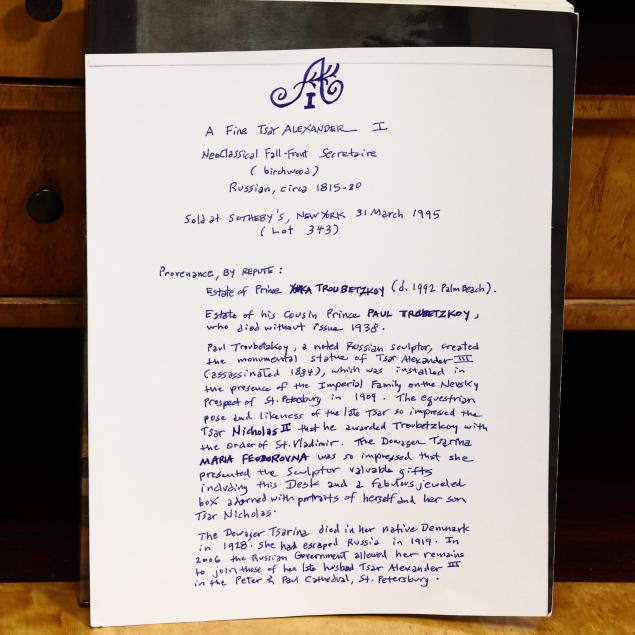 A I
A Fine Tsar ALEXANDER I
NeoClassical Fall-Front Secretaire
(birchwood)
Russian, circa 1815-20
Sold at SOTHEBY'S, NEW YORK 31 March 1995
(Lot 343)
Provenance, BY REPUTE:
Estate of Prince TROUBETZKOY (d. 1992 Palm Beach).
Estate of his Cousin Prince PAUL TROUBETZKOY,
who died without issue 1938.
Paul Troubetzkoy, a noted Russian sculptor, created
the monumental statue of Tsar Alexander III
(assassinated 1894), which was installed in
the presence of the Imperial Family on the Nevsky
Prospect of St. Petersburg in 1909. The equestrian
pose and likeness of the late Tsar so impressed the
Tsar Nicholas II that he awarded Troubetzkoy with
the Order of St. Vladimir. The Dowager Tsarina
MARIA FEODOROVNA was so impressed that she
presented the sculptor valuable gifts
including this Desk and a fabulous jeweled
box adorned with portraits of herself and her son
Tsar Nicholas.
The Dowager Tsarina died in her native Denmark
in 1928. She had escaped Russia in 1919. In
2006 the Russian Government allowed her remains
to join those of her late husband Tsar Alexander III
in the Peter & Paul Cathedral, St. Petersburg.